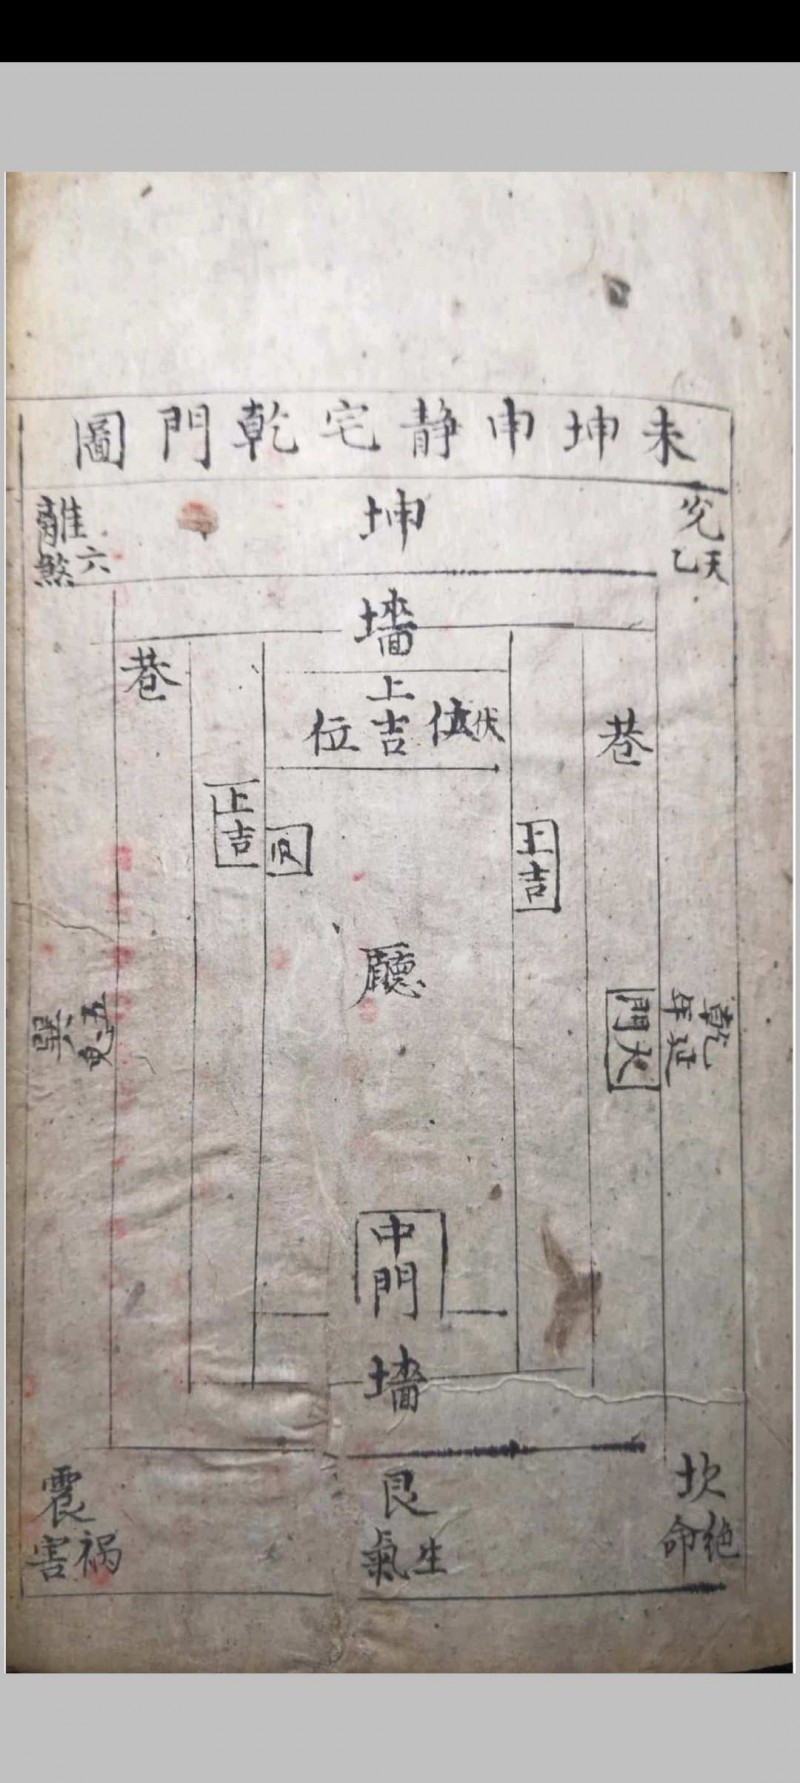 未坤申静宅乾門圖
兌
天乙
坤
離
六煞
墻
巷
巷
伏位
上吉
位
上吉
上吉
廳
乾
延年
大門
巽
五鬼
中門
墻
坎
絶命
艮
生氣
震
祸害